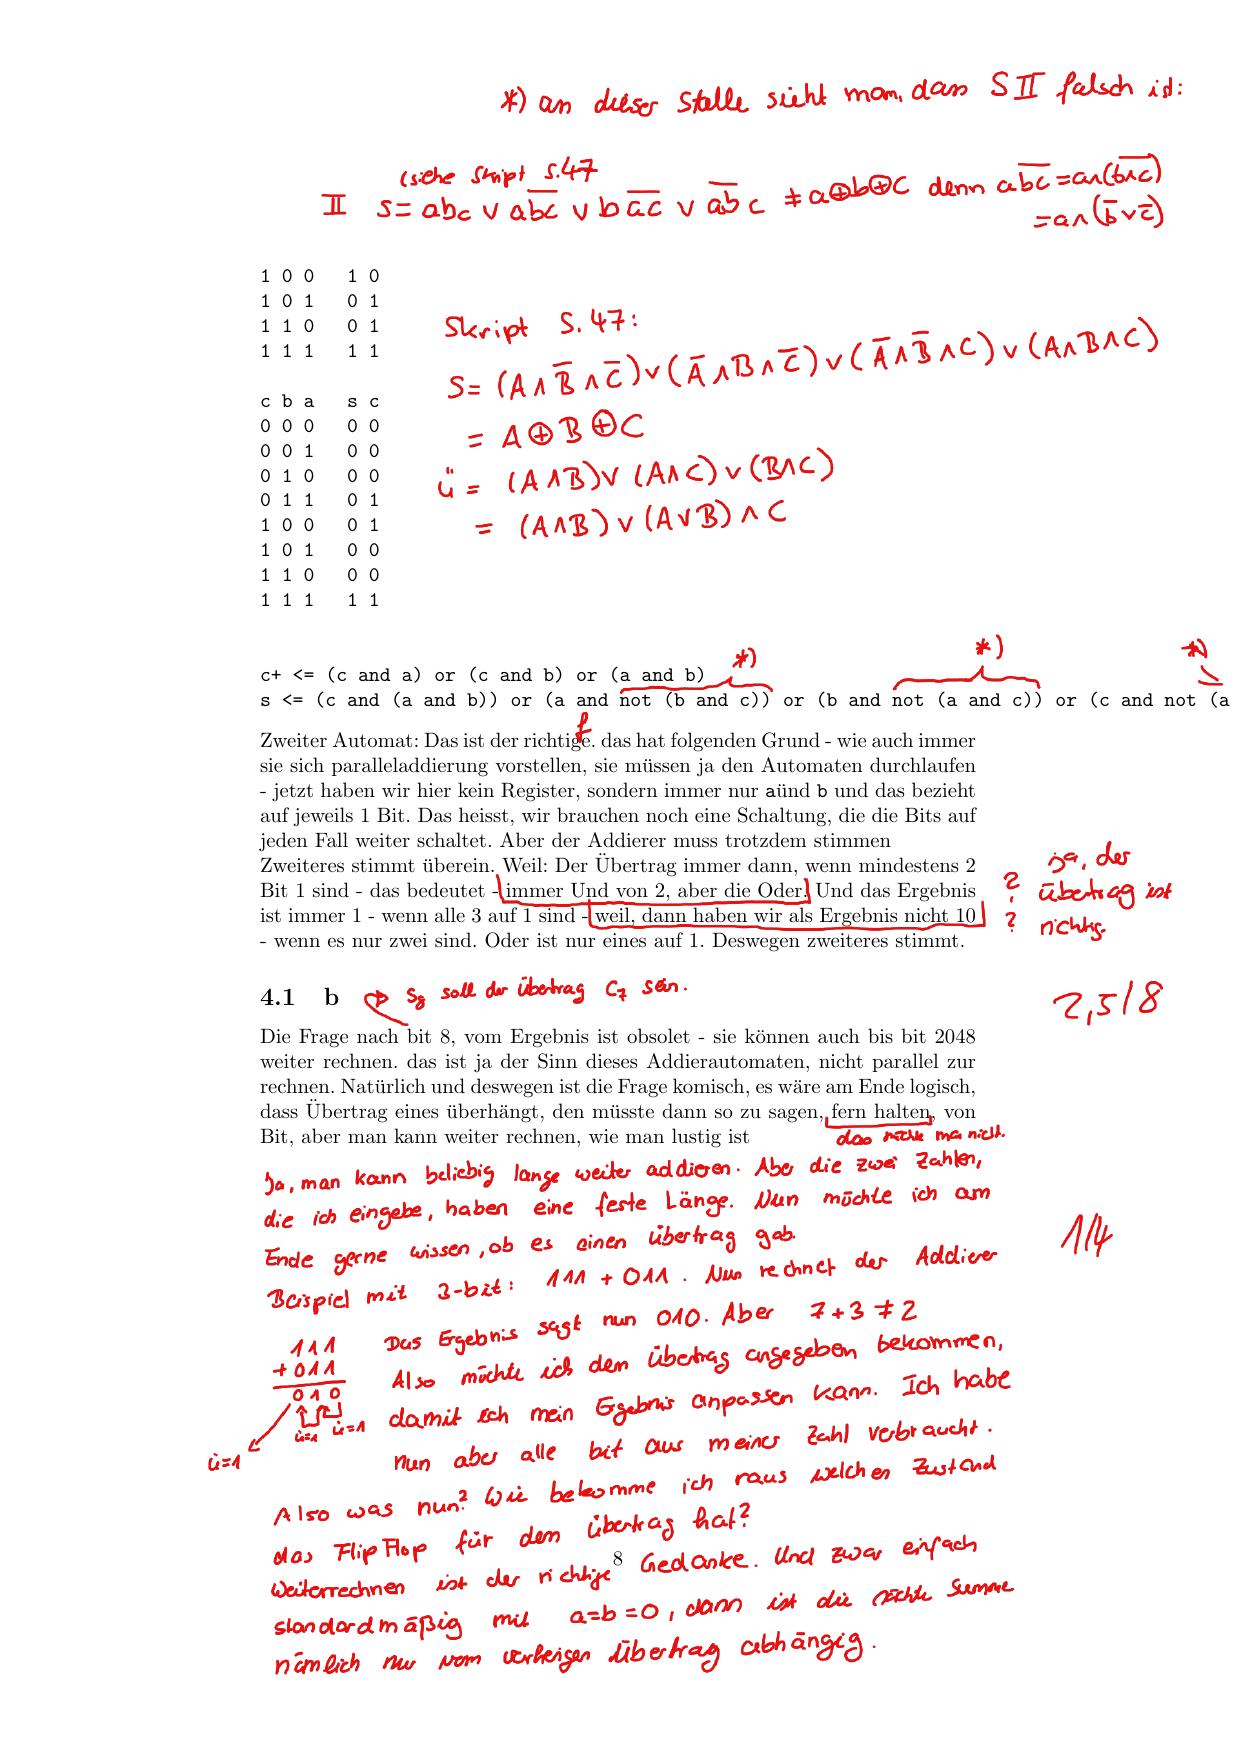 *) an dieser Stelle sieht man, dass S II falsch ist:
(siehe Skript S.47
II s = abc ∨ a\overline{bc} ∨ b\overline{ac} ∨ \overline{ab}c ≠ a⊕b⊕c denn a\overline{bc} = a∧(\overline{b∧c})
= a∧(\overline{b}∨\overline{c})
1 0 0 1 0
1 0 1 0 1
1 1 0 0 1
1 1 1 1 1
Skript S.47:
S = (A ∧ \overline{B} ∧ \overline{C}) ∨ (\overline{A} ∧ B ∧ \overline{C}) ∨ (\overline{A} ∧ \overline{B} ∧ C) ∨ (A ∧ B ∧ C)
= A ⊕ B ⊕ C
ü = (A ∧ B) ∨ (A ∧ C) ∨ (B ∧ C)
= (A ∧ B) ∨ (A ∨ B) ∧ C
c b a s c
0 0 0 0 0
0 0 1 0 0
0 1 0 0 0
0 1 1 0 1
1 0 0 0 1
1 0 1 0 0
1 1 0 0 0
1 1 1 1 1
*) *) *)
c+ <= (c and a) or (c and b) or (a and b)
s <= (c and (a and b)) or (a and not (b and c)) or (b and not (a and c)) or (c and not (a
f
Zweiter Automat: Das ist der richtige. das hat folgenden Grund - wie auch immer
sie sich paralleladdierung vorstellen, sie müssen ja den Automaten durchlaufen
- jetzt haben wir hier kein Register, sondern immer nur aünd b und das bezieht
auf jeweils 1 Bit. Das heisst, wir brauchen noch eine Schaltung, die die Bits auf
jeden Fall weiter schaltet. Aber der Addierer muss trotzdem stimmen
Zweiteres stimmt überein. Weil: Der Übertrag immer dann, wenn mindestens 2
Bit 1 sind - das bedeutet - immer Und von 2, aber die Oder. Und das Ergebnis
ist immer 1 - wenn alle 3 auf 1 sind - weil, dann haben wir als Ergebnis nicht 10
- wenn es nur zwei sind. Oder ist nur eines auf 1. Deswegen zweiteres stimmt.
?
?
ja, der
übertrag ist
richtig.
4.1 b
S₈ soll der übertrag C₇ sein.
2,5/8
Die Frage nach bit 8, vom Ergebnis ist obsolet - sie können auch bis bit 2048
weiter rechnen. das ist ja der Sinn dieses Addierautomaten, nicht parallel zur
rechnen. Natürlich und deswegen ist die Frage komisch, es wäre am Ende logisch,
dass Übertrag eines überhängt, den müsste dann so zu sagen, fern halten, von
Bit, aber man kann weiter rechnen, wie man lustig ist
das möchte man nicht.
Ja, man kann beliebig lange weiter addieren. Aber die zwei Zahlen,
die ich eingebe, haben eine feste Länge. Nun möchte ich am
Ende gerne wissen, ob es einen übertrag gab.
1/4
Beispiel mit 3-bit: 111 + 011. Nun rechnet der Addierer
111
+ 011
010
ü=1 ü=1
ü=1
Das Ergebnis sagt nun 010. Aber 7+3 ≠ 2
Also möchte ich den übertrag angegeben bekommen,
damit ich mein Ergebnis anpassen kann. Ich habe
nun aber alle bit aus meiner Zahl verbraucht.
Also was nun? Wie bekomme ich raus welchen Zustand
das FlipFlop für den übertrag hat?
8
Weiterrechnen ist der richtige Gedanke. Und zwar einfach
standardmäßig mit a=b=0, dann ist die nächste Summe
nämlich nur vom vorherigen übertrag abhängig.